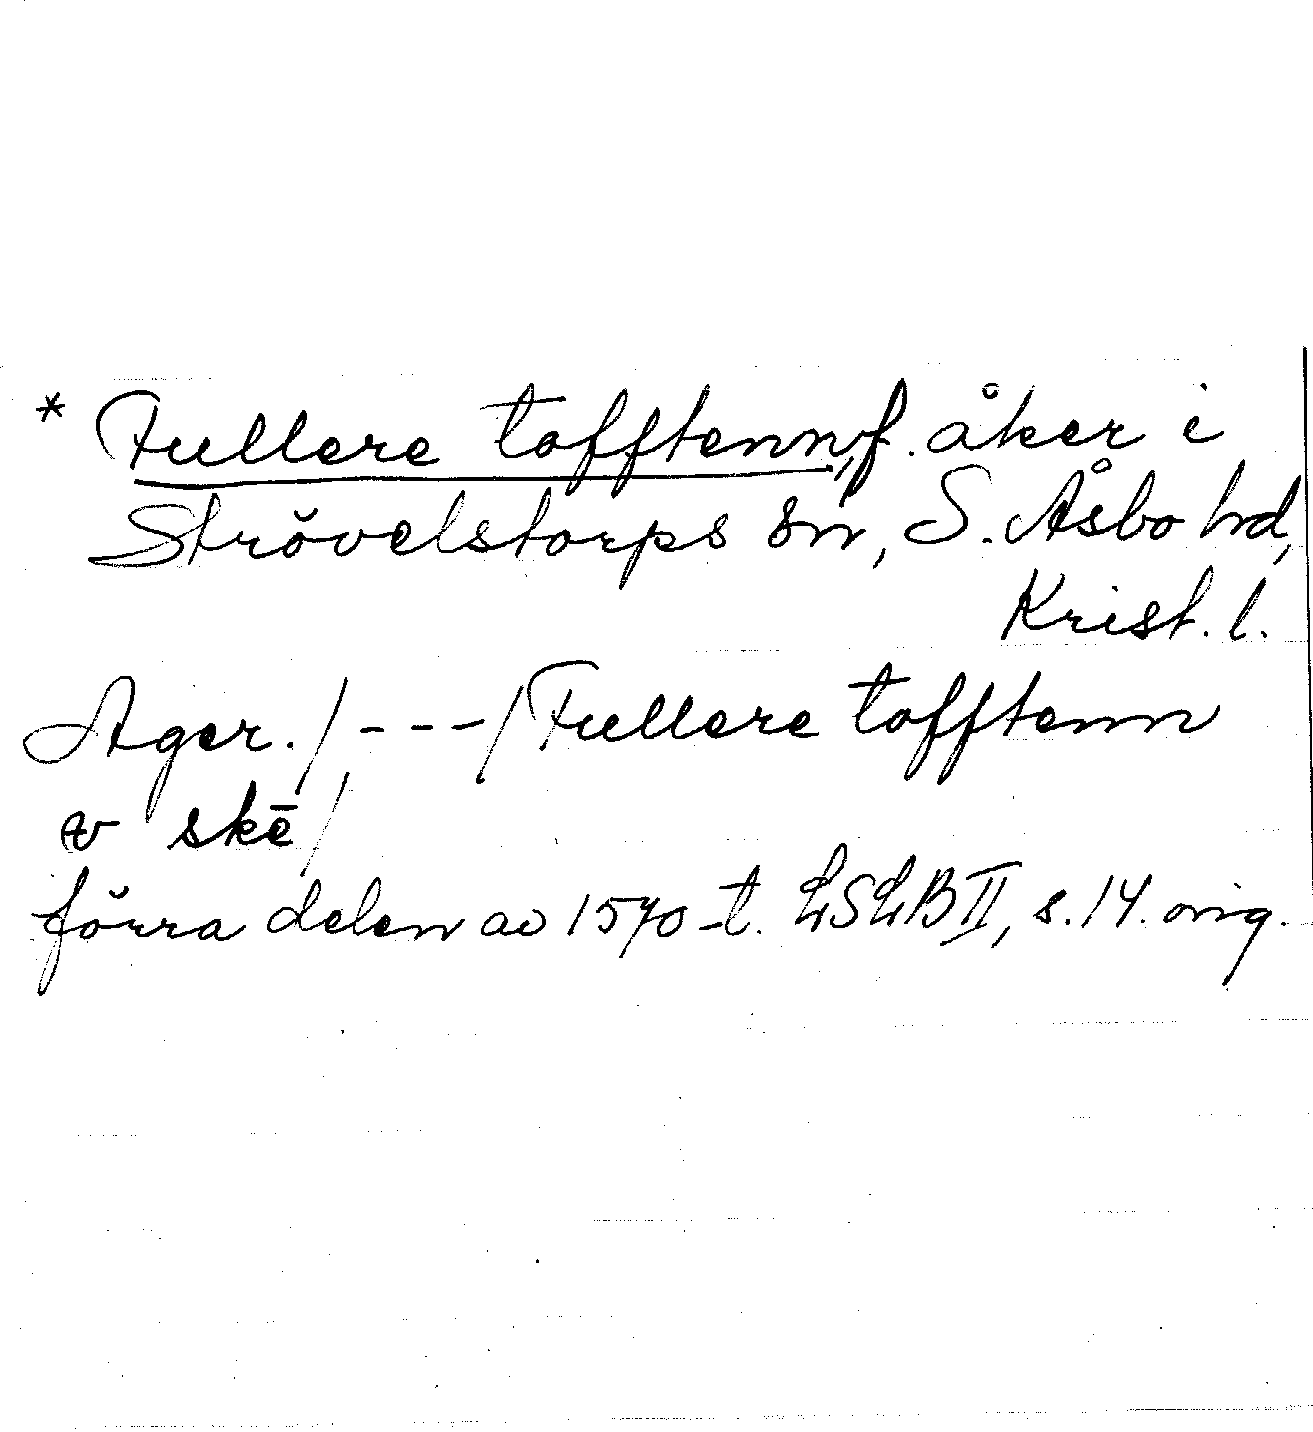 * Fullere tofftenn, f. åker i
Strövelstorps sn, S. Åsbo hd,
Krist. l.
Ager. /---/ Fullere tofftenn
w skē/
förra delen av 1570-t. LSLB II, s. 14. orig.